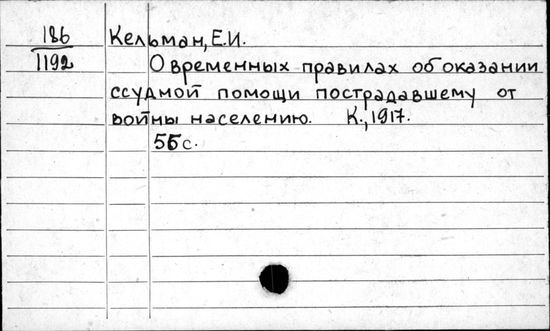 186 Кельман, Е.И.
1192 О временных правилах об оказании
ссудной помощи пострадавшему от
войны населению. К., 1917.
55 с.